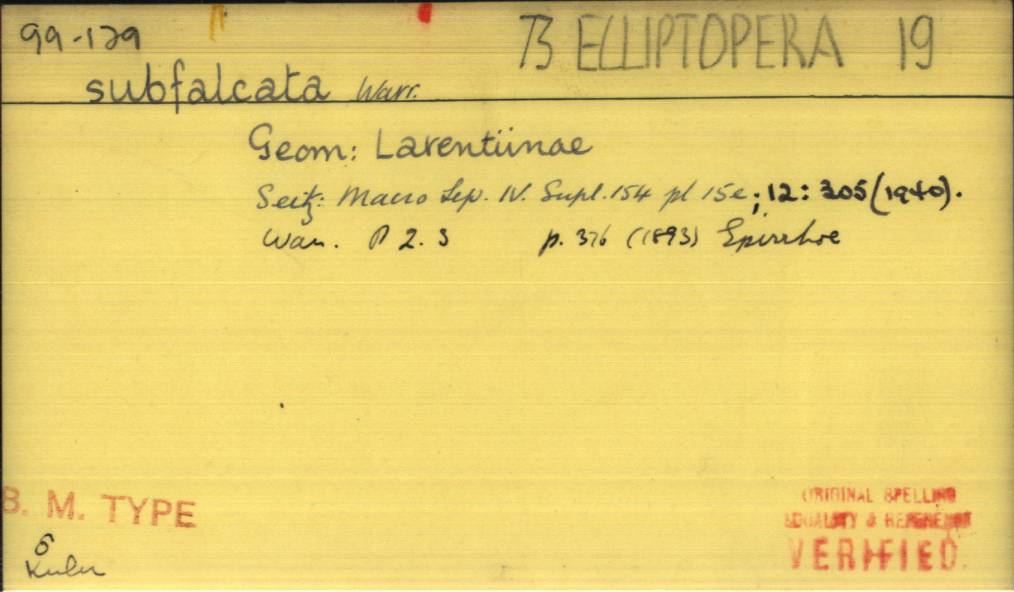 99-129 73 ELLIPTOPERA 19
subfalcata Warr.
Geom: Larentiinae
Seitz: Macro Lep. IV. Supl. 154 pl 15e; 12: 305 (1940).
Warr. P Z. S p. 376 (1893) Epirrhoe
B. M. TYPE
ORIGINAL SPELLING
LOCALITY & REFERENCE
VERIFIED.
6